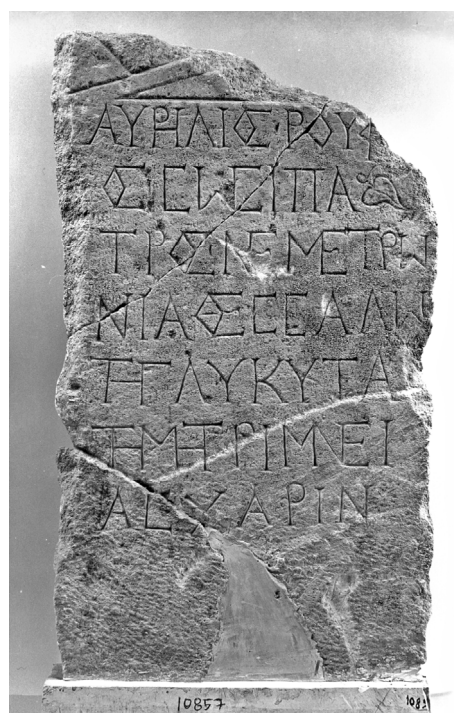 ΑΥΡΗΛΙΟΣ ΡΟΥΦ
ΟΣ Ι ΣΩΣΙΠΑ
ΤΡΟΣ ΙΣ ΜΕΤΡΩ
ΝΙΑ ΘΕΣΣΑΛΩ
ΤΗ ΓΛΥΚΥΤΑ
ΤΗ ΜΗΤΡΙ ΜΝΕΙ
ΑΣ ΧΑΡΙΝ
10857